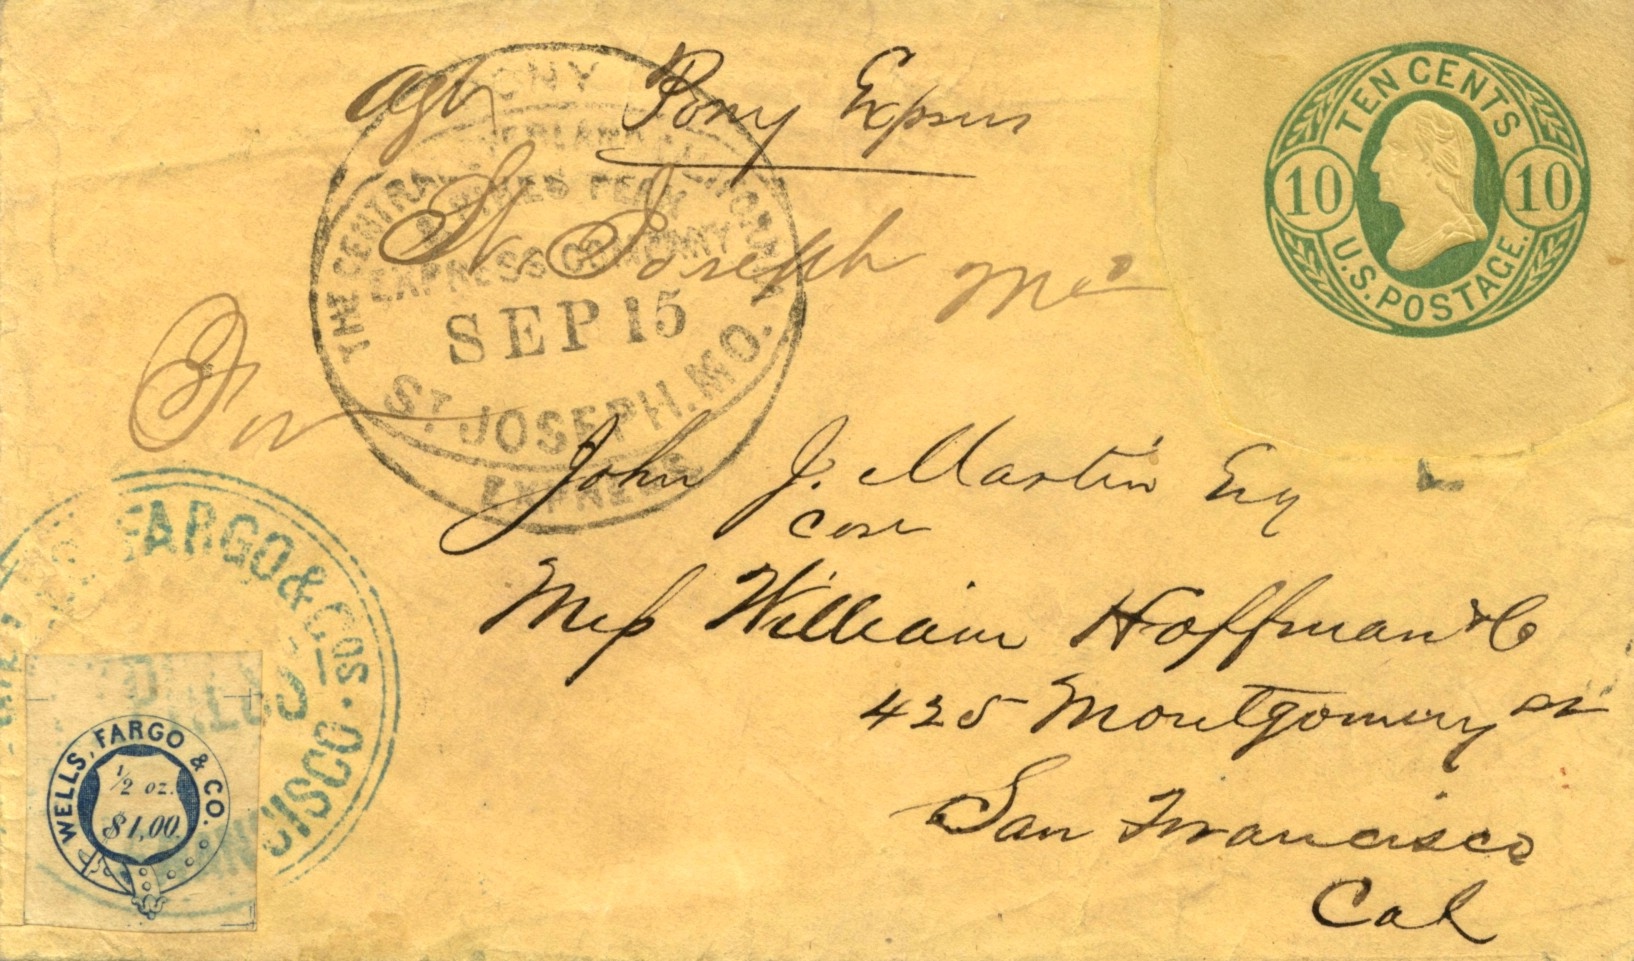 Agt Pony Express
St. Joseph Mo
For
John J. Martin Esq
care
Mess William Hoffman & Co
425 Montgomery St
San Francisco
Cal
PONY
THE CENTRAL OVERLAND CALIFORNIA
& PIKES PEAK
EXPRESS COMPANY
SEP 15
ST JOSEPH. MO.
EXPRESS
TEN CENTS
10 10
U.S. POSTAGE.
FARGO & CO'S
OCT 1
WELLS, FARGO & CO.
1/2 oz.
$1,00.